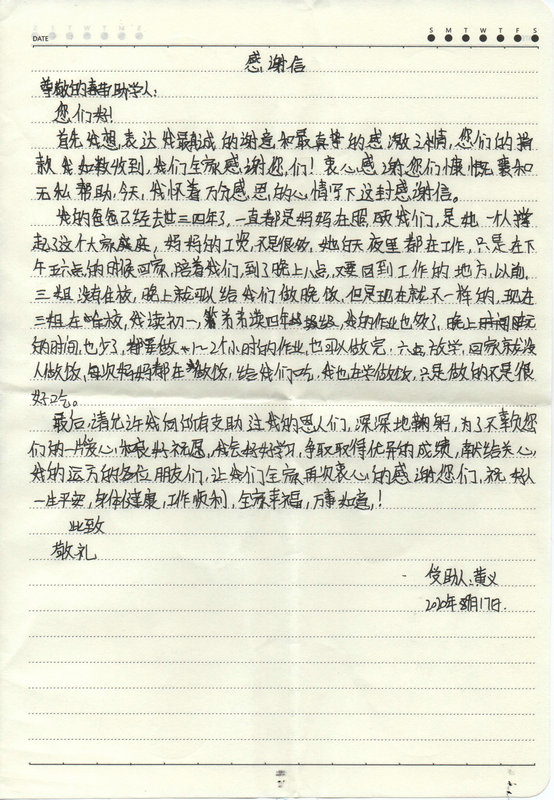 DATE
S M T W T F S
感谢信
尊敬的春苗助学人:
您们好!
首先我想表达我最诚的谢意和最真挚的感激之情,您们的捐
款我如数收到,我们全家感谢您们!衷心感谢您们慷慨襄和
无私帮助,今天,我怀着万分感恩的心情写下这封感谢信。
我的爸爸已经去世三四年了,一直都是妈妈在照顾我们,是她一个人撑
起了这个大家庭,妈妈的工资不是很够,她每天夜里都在工作,只是在下
午五六点的时候回家,陪着我们,到了晚上八点,又要回到工作的地方,以前
三姐没有住校,晚上就可以给我们做晚饭,但是现在就不一样的,现在
三姐在住校,我读初一,弟弟读四年级,我的作业也够了,晚上
的时间,也少了,都要做1~2个小时的作业,也可以做完.六点放学,回家就没
人做饭,每次妈妈都在做饭,给我们吃.我也在学做饭,只是做的不是很
好吃。
最后,请允许我向所有支助过我的恩人们,深深地鞠躬,为了不辜负您
们的一片爱心和良好祝愿,我会好好学习,争取取得优异的成绩,献给关心
我的远方的各位朋友们,让我们全家再次衷心的感谢您们,祝好人
一生平安,身体健康,工作顺利,全家幸福,万事如意,!
此致
敬礼
受助人:黄义
2020年8月17日.